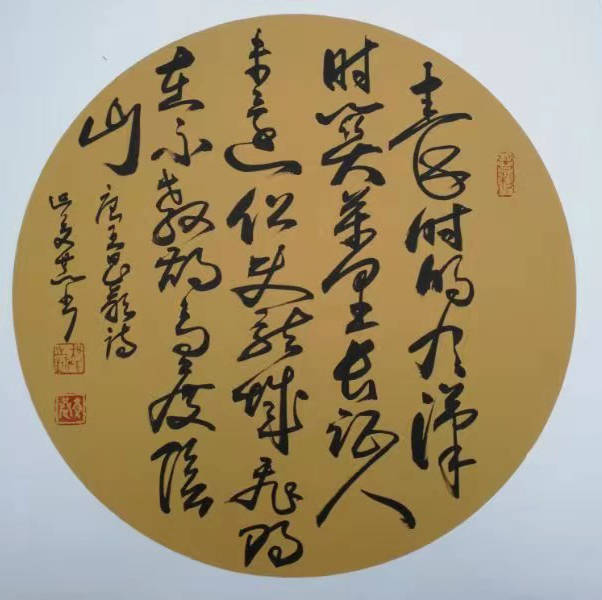 秦时明月汉
时关万里长征人
未还但使龙城飞将
在不教胡马度阴
山
唐王昌龄诗
书